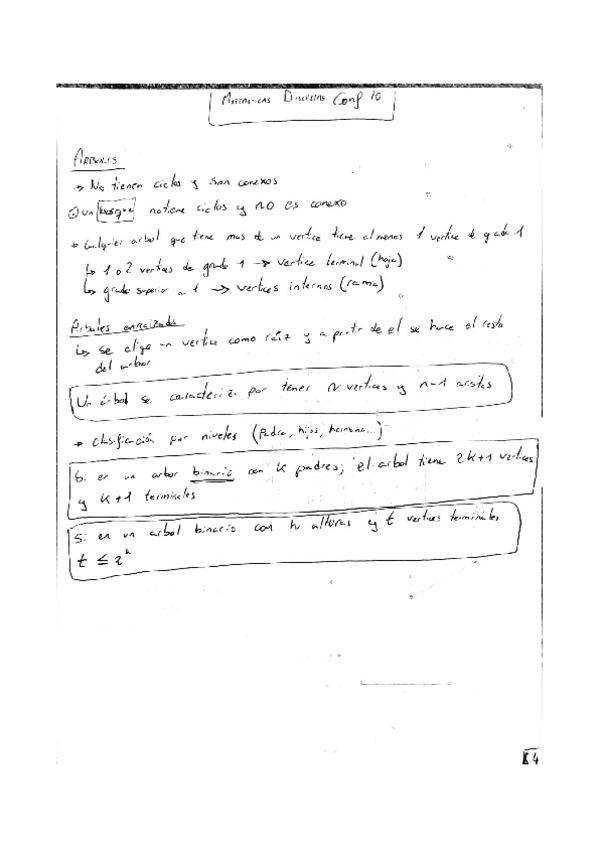 Matematicas Discretas Conf 10
ARBOLES
→ No tienen ciclos y son conexos
⊙ un bosque no tiene ciclos y NO es conexo
→ Cualquier arbol que tiene mas de un vertice tiene al menos 1 vertice de grado 1
↳ 1 o 2 vertices de grado 1 → vertice terminal (hoja)
↳ grado superior a 1 → vertices internos (rama)
Arboles enraizados
↳ se elige un vertice como raíz y a partir de el se hace el resto
del arbol
Un árbol se caracteriza por tener n vertices y n-1 aristas
→ clasificación por niveles (Padre, hijos, hermano...)
Si en un arbol binario con k padres, el arbol tiene 2k+1 vertices
y k+1 terminales
Si en un arbol binario con h alturas y t vertices terminales
t ≤ 2^h